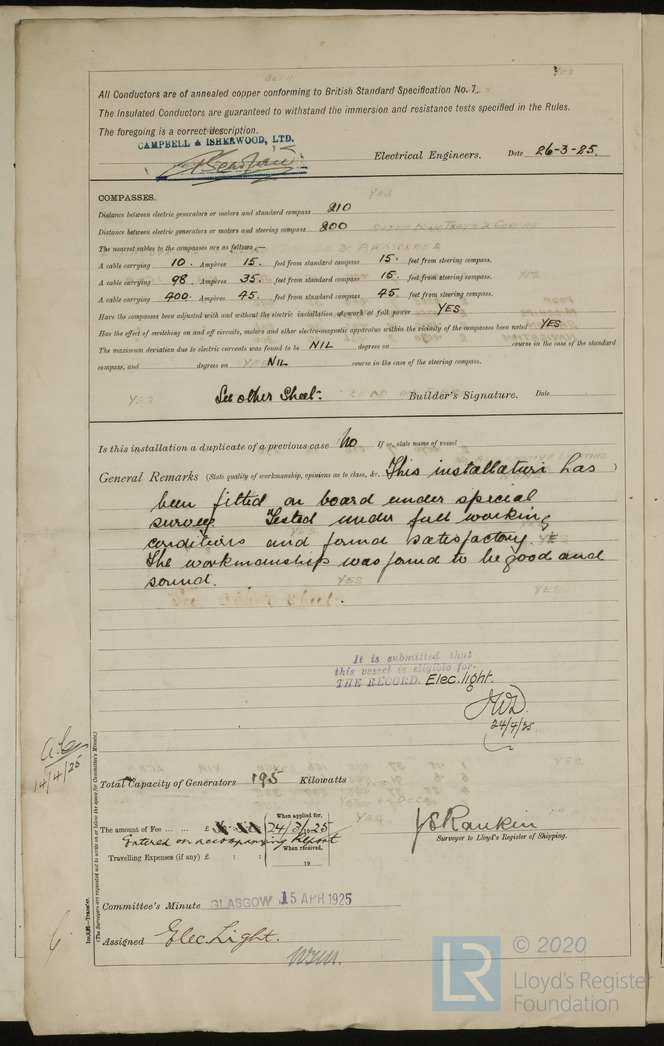 All Conductors are of annealed copper conforming to British Standard Specification No. 7.
The Insulated Conductors are guaranteed to withstand the immersion and resistance tests specified in the Rules.
The foregoing is a correct description.
CAMPBELL & ISHERWOOD, LTD.
Electrical Engineers. Date 26-3-25.
COMPASSES.
Distance between electric generators or motors and standard compass 210
Distance between electric generators or motors and steering compass 200
The nearest cables to the compasses are as follows:—
A cable carrying 10. Ampères 15. feet from standard compass 15. feet from steering compass.
A cable carrying 98 Ampères 35. feet from standard compass 15 feet from steering compass.
A cable carrying 400. Ampères 45. feet from standard compass 45. feet from steering compass.
Have the compasses been adjusted with and without the electric installation at work at full power YES
Has the effect of switching on and off circuits, motors and other electro-magnetic apparatus within the vicinity of the compasses been noted YES
The maximum deviation due to electric currents was found to be NIL degrees on course in the case of the standard
compass, and NIL degrees on course in the case of the steering compass.
See other Sheet. Builder's Signature. Date
Is this installation a duplicate of a previous case No If so, state name of vessel
General Remarks (State quality of workmanship, opinions as to class, &c. This installation has )
been fitted on board under special
survey. Tested under full working
conditions and found satisfactory.
The workmanship was found to be good and
sound.
It is submitted that
this vessel is eligible for
THE RECORD. Elec. light.
24/4/25
14/4/25
Total Capacity of Generators 195 Kilowatts
The amount of Fee ... ... £ When applied for, 24/3/1925
Entered on accompanying Report
Travelling Expenses (if any) £ : : When received, 19
J S Rankin
Surveyor to Lloyd's Register of Shipping.
Committee's Minute GLASGOW 15 APR 1925
Assigned Elec. Light.
(The Surveyors are requested not to write on or below the space for Committee's Minute.)
LR
© 2020
Lloyd's Register
Foundation